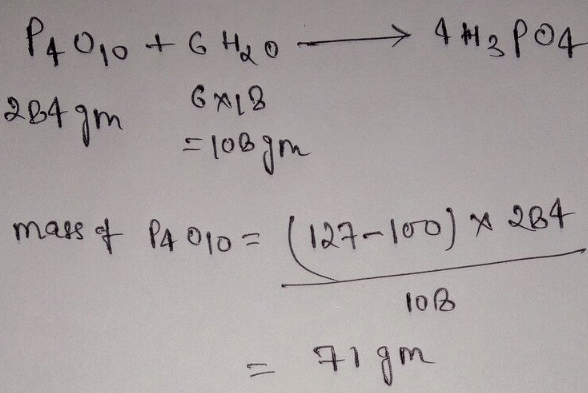 P4O10 + 6 H2O ⟶ 4H3PO4
284 gm 6×18
= 108 gm
mass of P4O10 = (127-100) × 284
108
= 71 gm